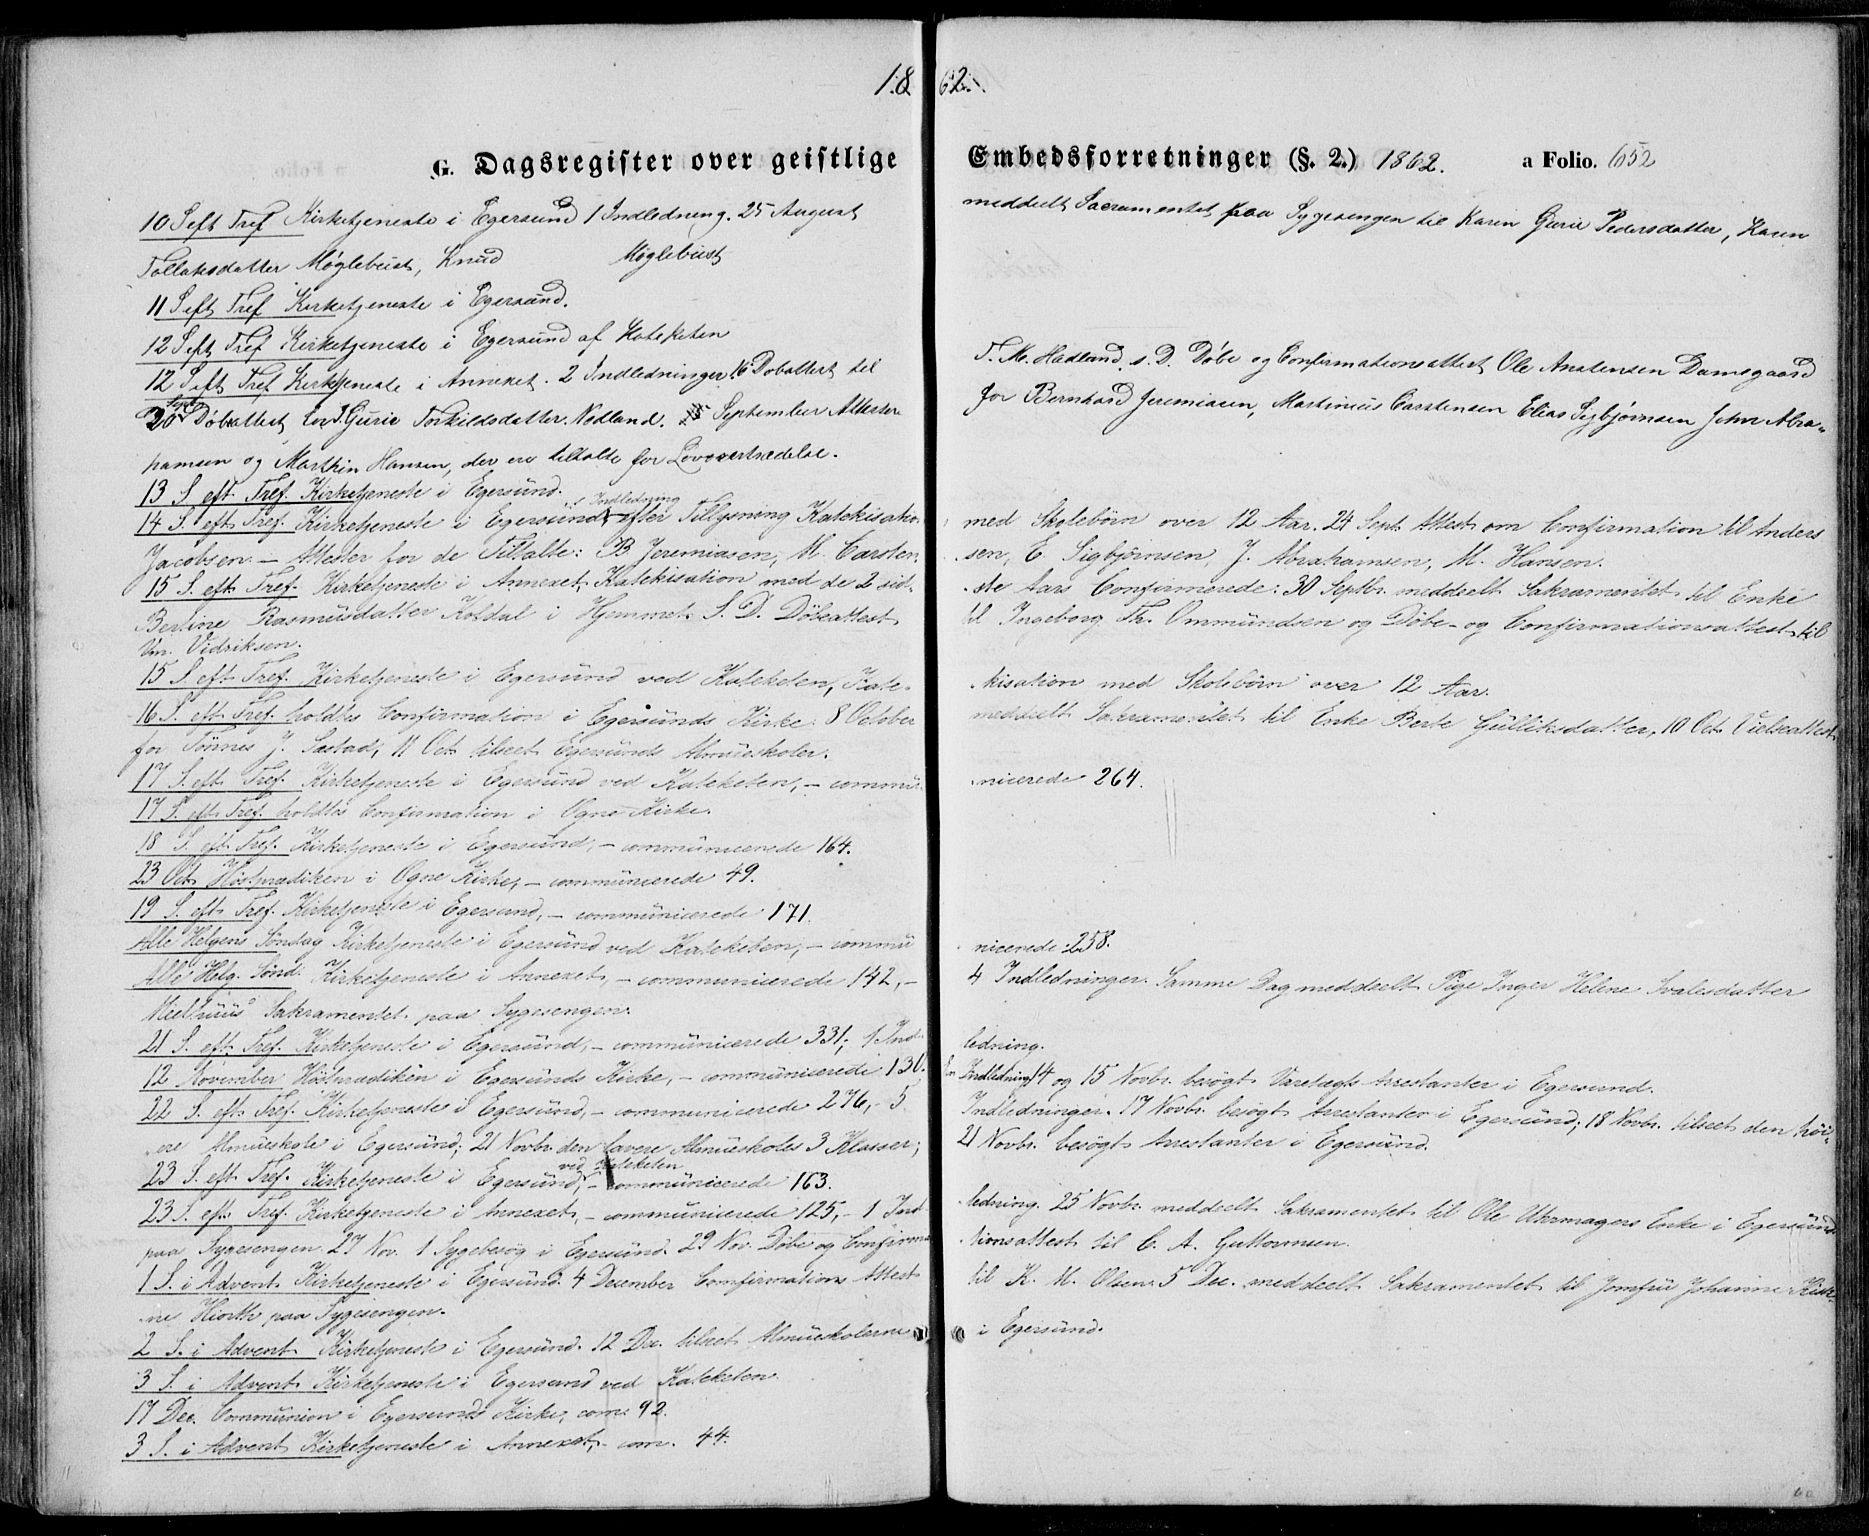 1862.
G. Dagsregister over geistlige Embedsforretninger (§. 2.) 1862. a Folio. 652
10 S eft Tref Kirketjeneste i Egersund 1 Indledning. 25 August meddeelt Sacramentet paa Sygesengen til Karen Gurie Pedersdatter, Karen
Tollaksdatter Møglebust, Knud Møglebust
11 S eft Tref Kirketjeneste i Egersund.
12 S eft Tref Kirketjeneste i Egersund af Kateketen
12 S eft Tref Kirketjeneste i Annexet. 2 Indledninger. 16 Dobattest til T. M. Hadland. s. D. Døbe og Confirmationsattest Ole Anstensen Damsgaard
20 Septbr Døbeattest for T. Gurie Torkildsdatter Nodland. September Attester for Bernhard Jeremiasen, Martinius Carstensen Elias Sigbjørnsen John Abra-
hamsen og Marthin Hansen, der ere tiltalte for Lovovertrædelse.
13 S. eft. Tref. Kirketjeneste i Egersund.
1 Indledning
14 S. eft. Tref. Kirketjeneste i Egersund, efter Tillysning Katekisation med Skolebörn over 12 Aar. 24 Sept. Attest om Confirmation til Anders
Jacobsen. – Attester for de Tiltalte: B. Jeremiasen, M. Carstensen, E. Sigbjörnsen, J. Abrahamsen, M. Hansen.
15 S. eft. Tref. Kirketjeneste i Annexet, Katekisation med de 2 sidste Aars Confirmerede: 30 Septbr. meddeelt Sakramentet til Enke
Bertine Rasmusdatter Koldal i Hjemmet. S. D. Döbeattest til Ingeborg Th. Ommundsen og Döbe- og Confirmationsattest til
Vm. Vidriksen.
15 S. eft Tref. Kirketjeneste i Egersund ved Kateketen, Katekisation med Skolebörn over 12 Aar.
16 S. eft Tref. holdtes Confirmation i Egersunds Kirke. 8 October meddeelt Sakramentet til Enke Berte Gulliksdatter, 10 Oct. Vielseattest
for Tönnes J. Sæstad, 11 Oct. tilseet Egersunds Almueskoler.
17 S. eft. Tref. Kirketjeneste i Egersund ved Kateketen, – communicerede 264.
17 S. eft Tref. holdtes Confirmation i Ogne Kirke.
18 S. eft. Tref. Kirketjeneste i Egersund, – communicerede 164.
23 Oct. Höstprædiken i Ogne Kirke, – communicerede 49.
19 S. eft. Tref. Kirketjeneste i Egersund, – communicerede 171.
Alle Helgens Söndag Kirketjeneste i Egersund ved Kateketen, – communicerede: 258.
Alle Helg. Sönd. Kirketjeneste i Annexet, – communicerede 142, – 4 Indledninger. Samme Dag meddeelt Pige Inger Helene Svalesdatter
Mielhuus Sakramentet paa Sygesengen.
21 S. eft. Tref. Kirketjeneste i Egersund, – communicerede 331, 1 Indledning.
12 November Höstprædiken i Egersunds Kirke, – communicerede 130. En Indledning. 14 og 15 Novbr. besögt Varetægts Arrestanter i Egersund.
22 S. eft. Tref. Kirketjeneste i Egersund, – communicerede 276, – 5 Indledninger. 17 Novbr. besögt Arrestanter i Egersund; 18 Novbr. tilseet den höi-
ere Almueskole i Egersund; 21 Novbr. den lavere Almueskoles 3 Klasser; 21 Novbr. besögt Arrestanter i Egersund.
ved Kateketen
23 S. eft Tref. Kirketjeneste i Egersund, – communicerede 163.
23 S. eft. Tref. Kirketjeneste i Annexet, – communicerede 125, – 1 Indledning. 25 Novbr. meddeelt Sakramentet til Ole Uhrmagers Enke i Egersund
paa Sygesengen. 27 Nov. 1 Sygebesög i Egersund. 29 Nov. Döbe og Confirmationsattest til C. A. Guttormsen.
1 S. i Advent Kirketjeneste i Egersund. 4 December Confirmations-Attest til K. M. Olsen. 5 Dec. meddeelt Sakramentet til Jomfru Johanne
ne Hiorth paa Sygesengen.
2 S. i Advent Kirketjeneste i Egersund. 12 Dec. tilseet Almueskolerne i Egersund.
3 S. i Advent Kirketjeneste i Egersund ved Kateketen.
17 Dec. Communion i Egersunds Kirke, com. 92.
3 S. i Advent Kirketjeneste i Annexet, – com. 44.